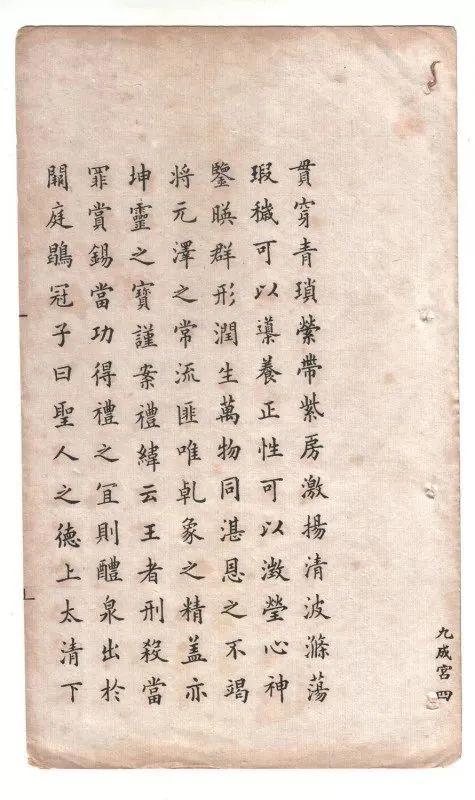 貫穿青瑣縈帶紫房激揚清波滌蕩
瑕穢可以導養正性可以澂瑩心神
鑒暎群形潤生萬物同湛恩之不竭
將元澤之常流匪唯乹象之精盖亦
坤靈之寶謹案禮緯云王者刑殺當
罪賞錫當功得禮之宜則醴泉出於
闕庭鶡冠子曰聖人之德上太清下
九成宮 四